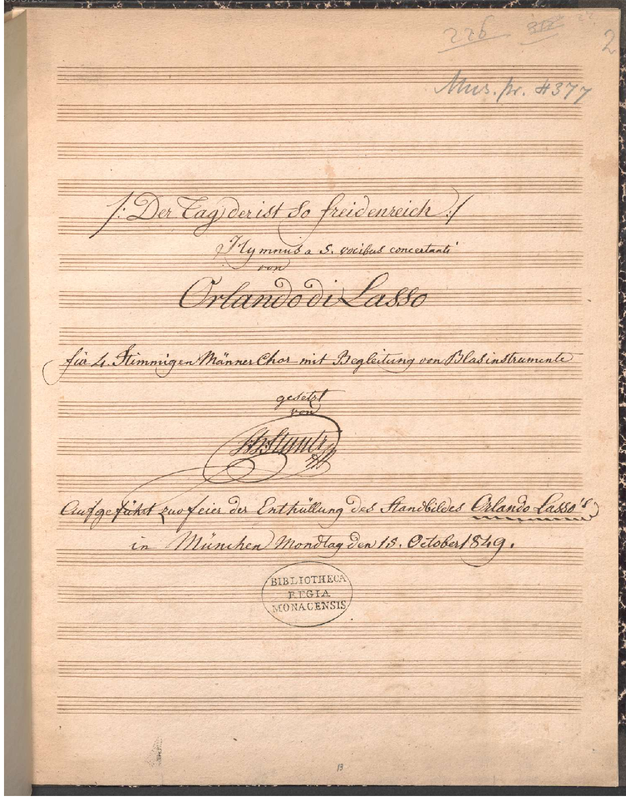 226
2
Mus. pr. 4377
/: Der Tag der ist so freidenreich :/
Hymnus a 5. vocibus concertanti
von
Orlando di Lasso
für 4. Stimmigen Männer Chor mit Begleitung von Blasinstrumente
gesetzt
von
Aufgeführt zur feier der Enthüllung des Standbildes Orlando Lasso's
in München Mondtag den 15. October 1849.
BIBLIOTHECA
REGIA
MONACENSIS
13